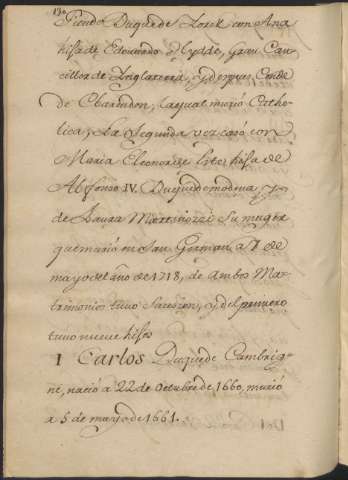 130
siendo Duque de Iorck con Ana
hija de Eduuardo d' Hydde, gran Can-
ciller de Inglaterra, y despues Conde
de Charendon, la qual murio Catho-
lica; La segunda vez casó con
Maria Eleonor de Este, hija de
Alfonso IV. Duque de Modena y
de Laura Martinozzi su muger
que murió en San German a 7 de
mayo del año de 1718, de ambos Ma-
trimonios tuvo sucesion, y del primero
tuvo nueve hijos
1 Carlos Duque de Cambrig-
ne, nació a 22 de Octubre de 1660, murio
a 5 de mayo de 1661.